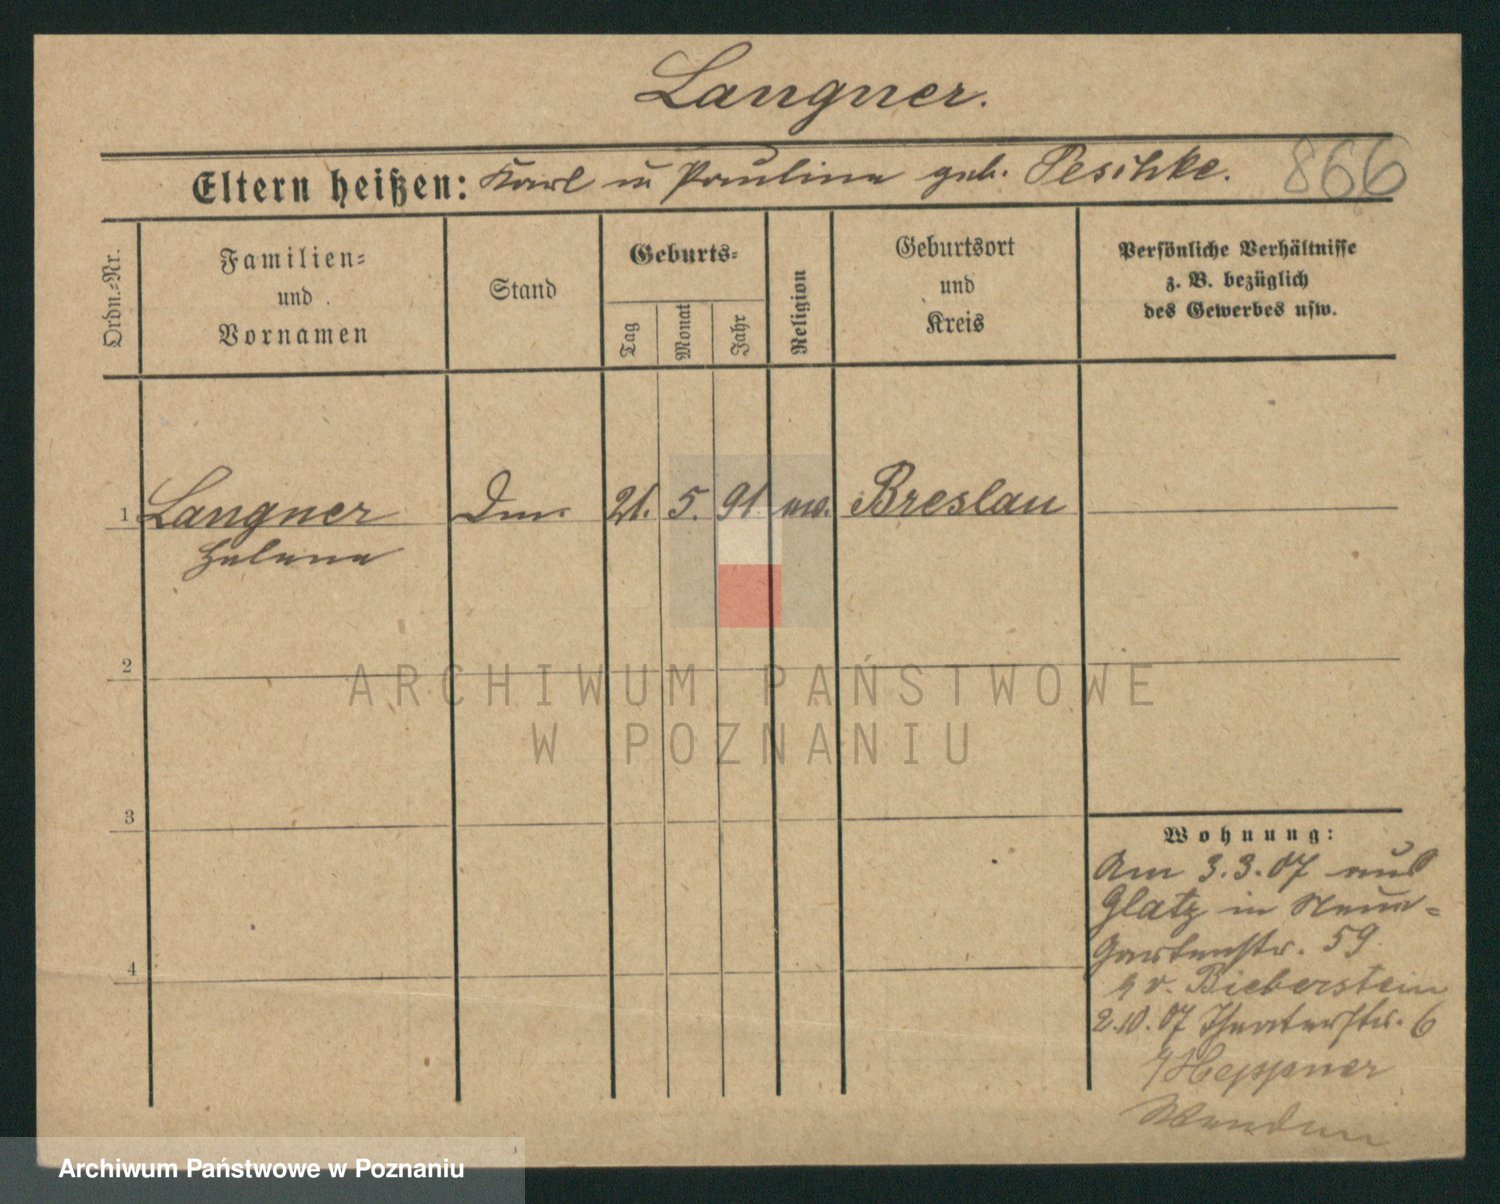 Langner.
Eltern heißen: Karl u Paulina geb. Peschke. 866
Ordn.-Nr.
Familien-
und
Vornamen
Stand
Geburts-
Tag
Monat
Jahr
Religion
Geburtsort
und
Kreis
Persönliche Verhältnisse
z. B. bezüglich
des Gewerbes usw.
1 Langner 21. 5. 91. Breslau
Helena
2
3
4
Wohnung:
Am 3.3.07 aus
Glatz in Neue-
Gartenstr. 59
v. Bieberstein
2.10.07 Theaterstr. 6
Heppner
ARCHIWUM PAŃSTWOWE
W POZNANIU
Archiwum Państwowe w Poznaniu